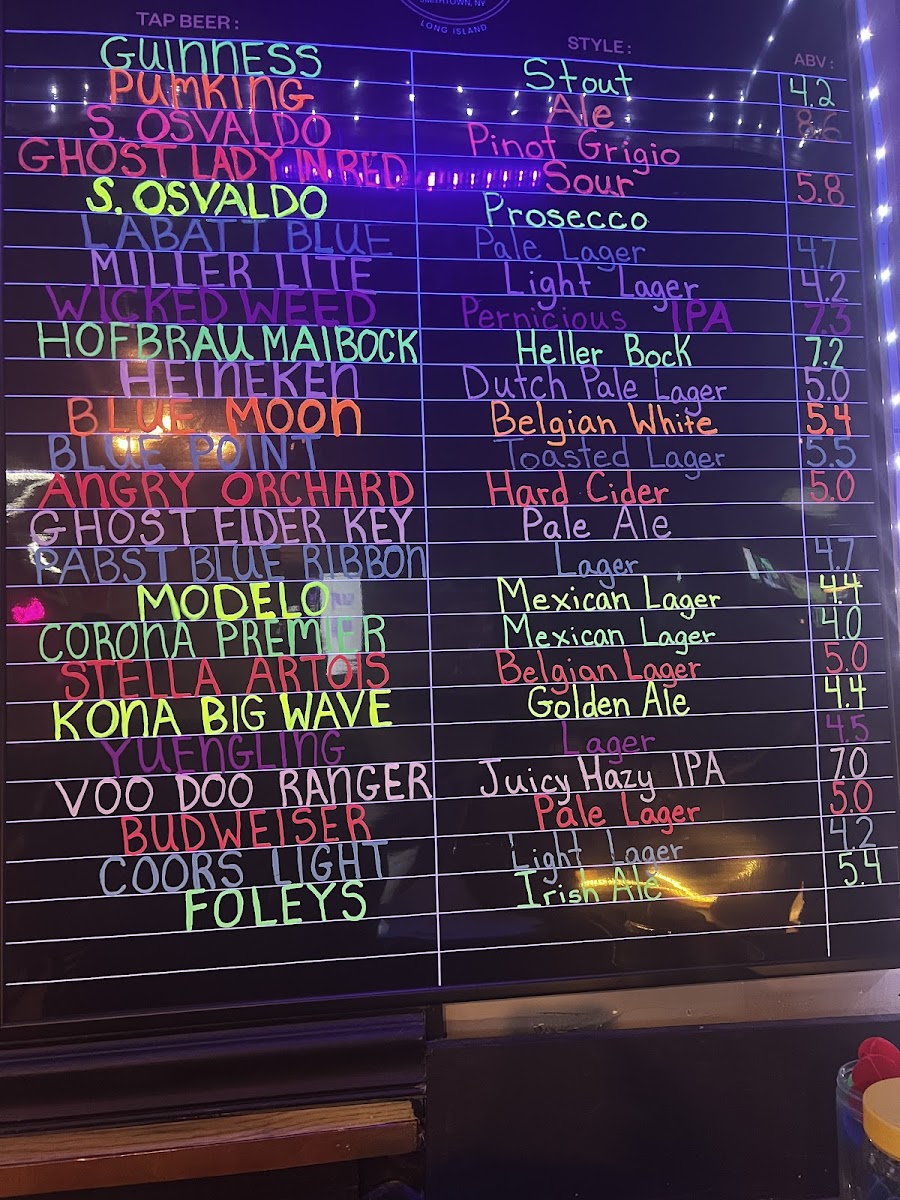 SMITHTOWN, NY
LONG ISLAND
TAP BEER: STYLE: ABV:
GUINNESS Stout 4.2
PUMKING Ale 8.6
S. OSVALDO Pinot Grigio
GHOST LADY IN RED Sour 5.8
S. OSVALDO Prosecco
LABATT BLUE Pale Lager 4.7
MILLER LITE Light Lager 4.2
WICKED WEED Pernicious IPA 7.3
HOFBRAU MAIBOCK Heller Bock 7.2
HEINEKEN Dutch Pale Lager 5.0
BLUE MOON Belgian White 5.4
BLUE POINT Toasted Lager 5.5
ANGRY ORCHARD Hard Cider 5.0
GHOST EIDER KEY Pale Ale
PABST BLUE RIBBON Lager 4.7
MODELO Mexican Lager 4.4
CORONA PREMIER Mexican Lager 4.0
STELLA ARTOIS Belgian Lager 5.0
KONA BIG WAVE Golden Ale 4.4
YUENGLING Lager 4.5
VOO DOO RANGER Juicy Hazy IPA 7.0
BUDWEISER Pale Lager 5.0
COORS LIGHT Light Lager 4.2
FOLEYS Irish Ale 5.4